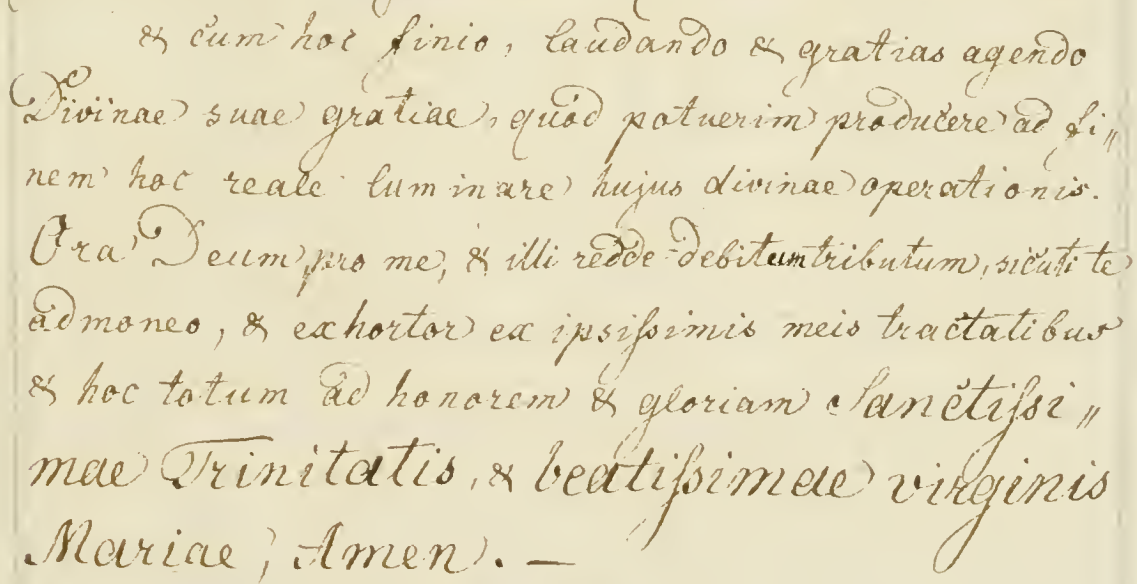 & cum hoc finio, laudando & gratias agendo
Divinae suae gratiae, quòd potuerim producere ad fi„
nem hoc reale luminare hujus divinae operationis.
Ora Deum pro me, & illi redde debitum tributum, sicuti te
admoneo, & exhortor ex ipsiſsimis meis tractatibus
& hoc totum ad honorem & gloriam Sanctiſsi„
mae Trinitatis, & beatiſsimae virginis
Mariae, Amen. —